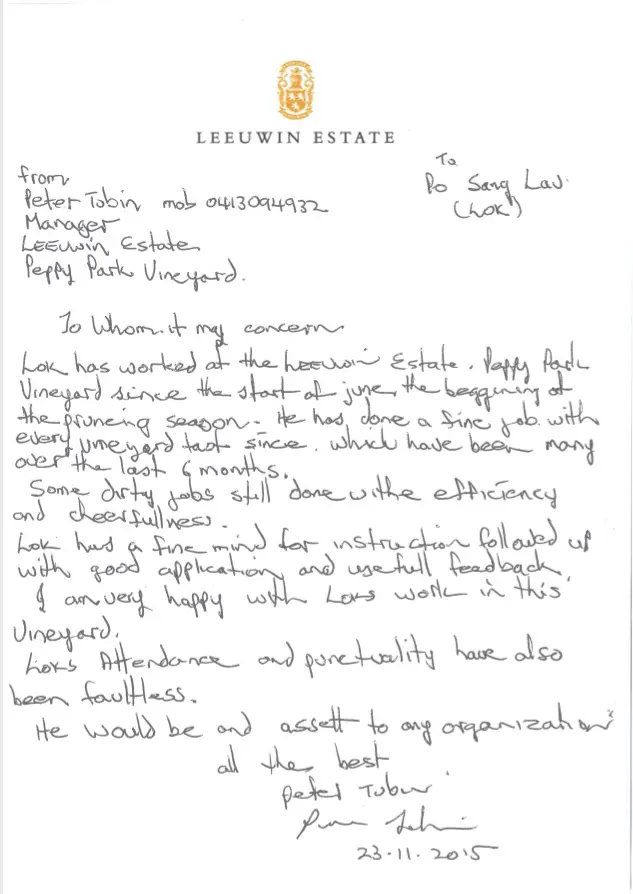 LEEUWIN ESTATE
To
Po Sang Lau
(Lok)
from
Peter Tobin mob 0413094932
Manager
LEEUWIN Estate
Peppy Park Vineyard.
To Whom it may concern
Lok has worked at the LEEUWIN Estate. Peppy Park
Vineyard since the start of june, the beggining of
the pruneing season. He has done a fine job with
every vineyard task since. which have been many
over the last 6 months.
Some dirty jobs still done withe efficiency
and cheerfullness.
Lok has a fine mind for instruction followed up
with good application and usefull feedback.
I am very happy with Loks work in this
Vineyard.
Loks Attendance and punctuality have also
been faultless.
He would be and assett to any organization
all the best
Peter Tobin
23.11.2015